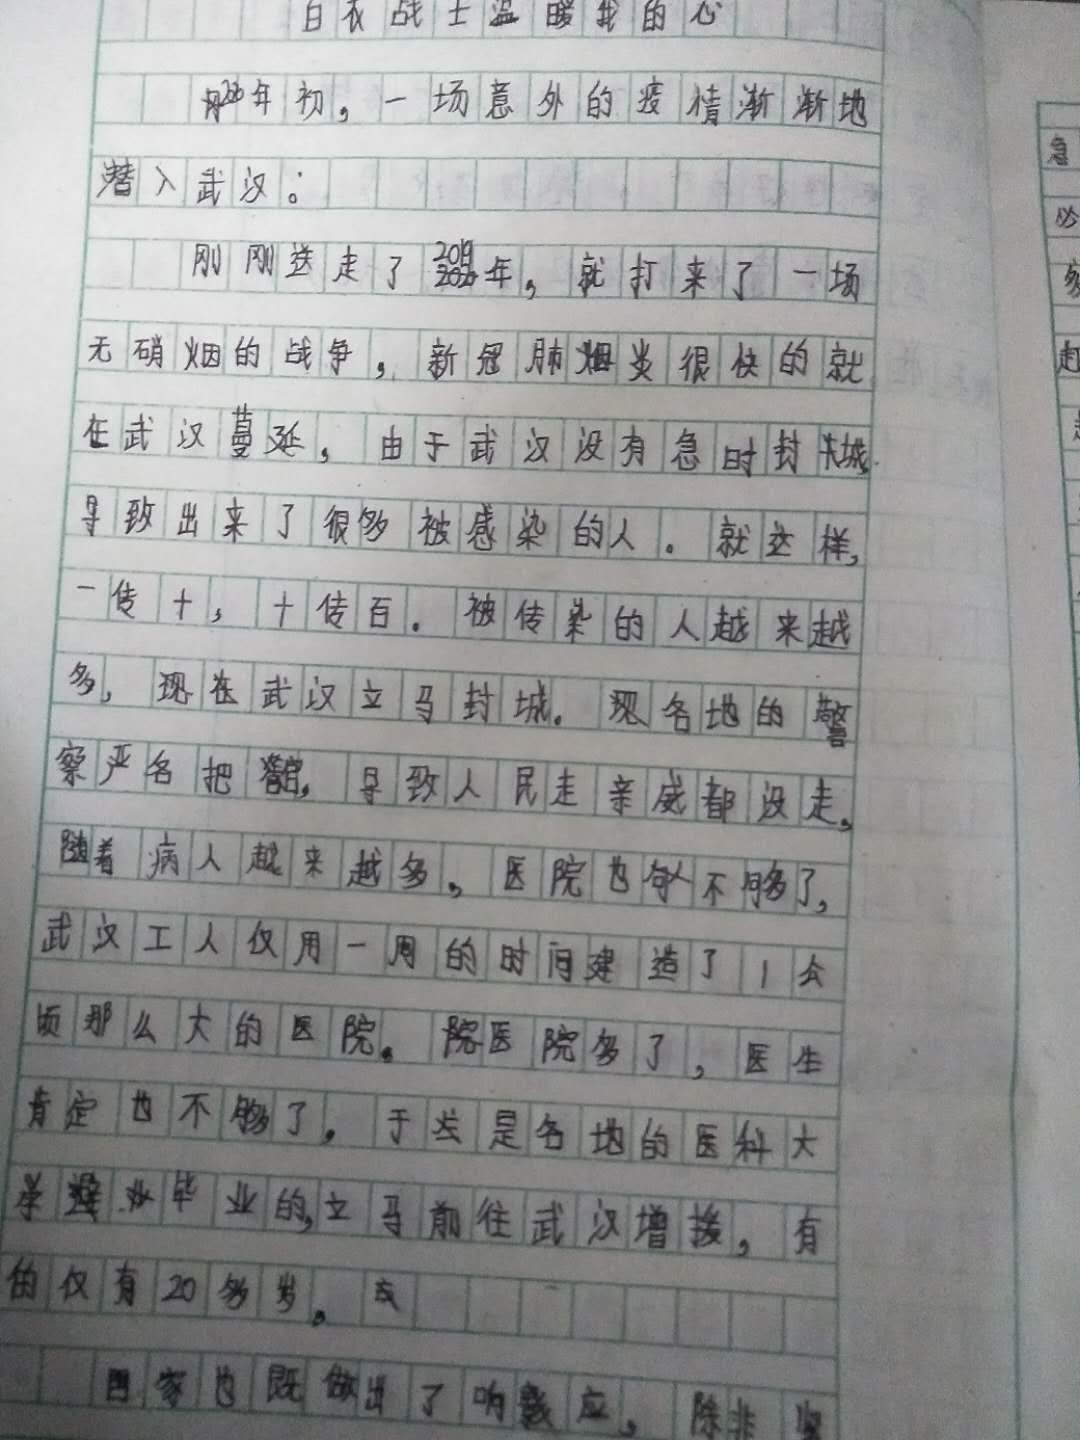 白衣战士温暖我的心
2020年初，一场意外的疫情渐渐地
潜入武汉。
刚刚送走了2019年，就打来了一场
无硝烟的战争，新冠肺炎很快的就
在武汉蔓延，由于武汉没有急时封城
导致出来了很多被感染的人。就这样，
一传十，十传百。被传染的人越来越
多，现在武汉立马封城。现各地的警
察严名把，导致人民走亲戚都没走。
随着病人越来越多，医院也不够了，
武汉工人仅用一周的时间建造了1公
顷那么大的医院。医院多了，医生
肯定也不够了。于是各地的医科大
学毕业的，立马前往武汉增援，有
的仅有20多岁。
国家也既做出了响应，除非紧
急
必
家
起